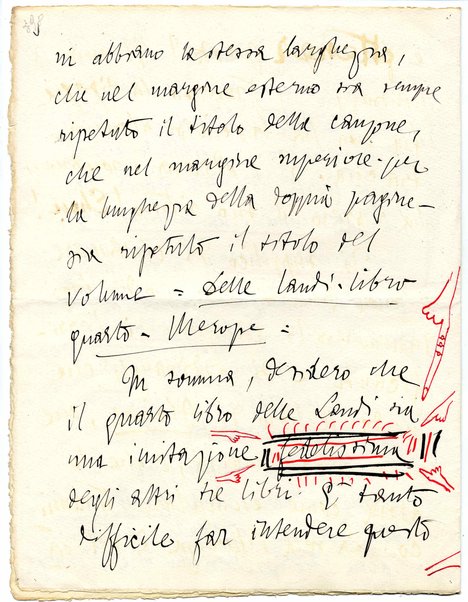 ni abbiano la stessa larghezza,
che nel margine esterno sia sempre
ripetuto il titolo della canzone,
che nel margine superiore - per
la lunghezza della doppia pagina -
sia ripetuto il titolo del
volume = Delle Laudi - libro
quarto - Merope =
In somma, desidero che
il quarto libro delle Laudi sia
una imitazione fedelissima
degli altri tre libri. È tanto
difficile far intendere questo